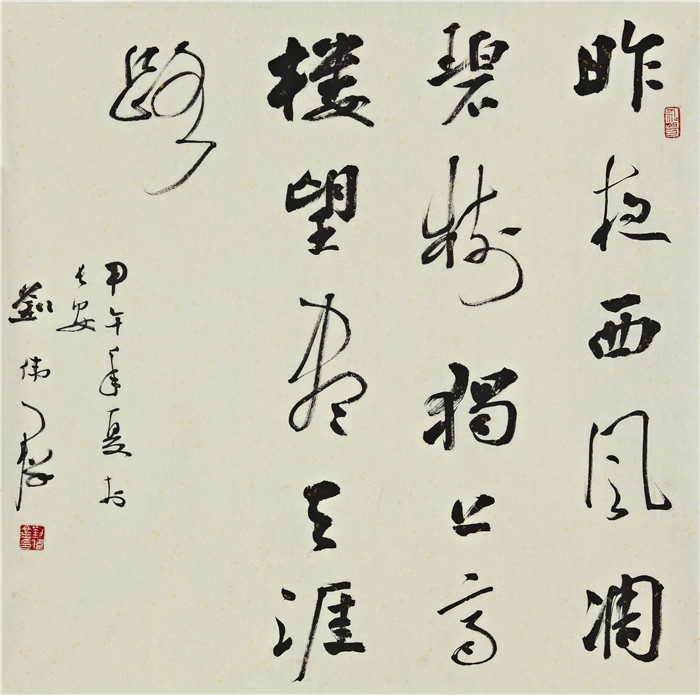 昨夜西风凋
碧树獨上高
楼望尽天涯
路
甲午年夏於
长安
劉伟